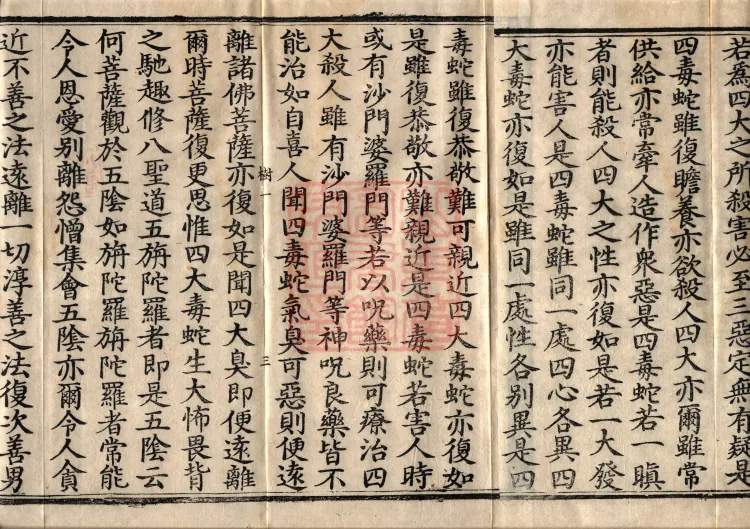 若為四大之所殺害必至三惡定無有疑是
四毒蛇雖復瞻養亦欲殺人四大亦爾雖常
供給亦常牽人造作衆惡是四毒蛇若一瞋
者則能殺人四大之性亦復如是若一大發
亦能害人是四毒蛇雖同一處四心各異四
大毒蛇亦復如是雖同一處性各別異是四
毒蛇雖復恭敬難可親近四大毒蛇亦復如
是雖復恭敬亦難親近是四毒蛇若害人時
或有沙門婆羅門等若以呪藥則可療治四
大殺人雖有沙門婆羅門等神呪良藥皆不
能治如自喜人聞四毒蛇氣臭可惡則便遠
樹一
三
離諸佛菩薩亦復如是聞四大臭即便遠離
爾時菩薩復更思惟四大毒蛇生大怖畏背
之馳趣修八聖道五旃陀羅者即是五陰云
何菩薩觀於五陰如旃陀羅旃陀羅者常能
令人恩愛別離怨憎集會五陰亦爾令人貪
近不善之法遠離一切淳善之法復次善男